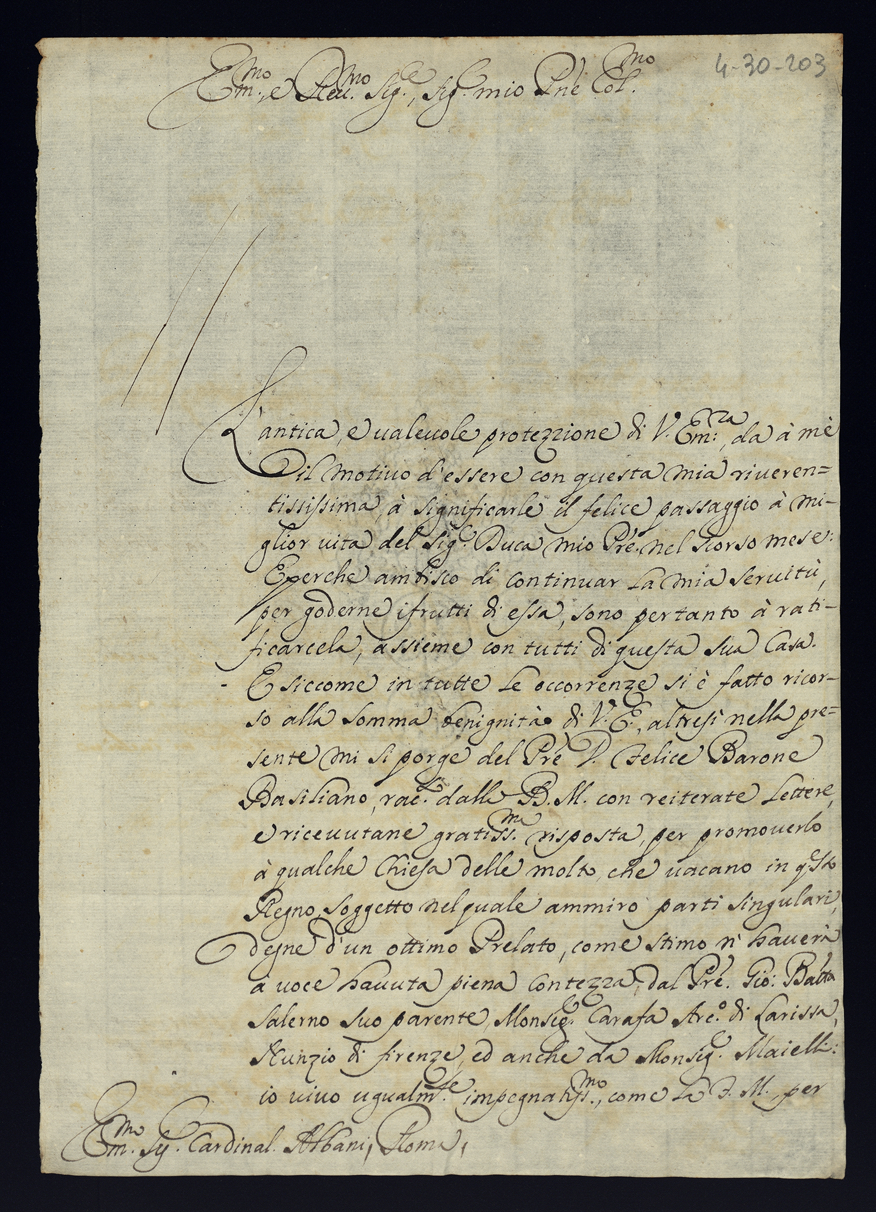 4-30-203
Em.mo, e Reu.mo Sig.re, Sig.r mio Pne Col.mo
L'antica, e ualeuole protezzione di V. Em:za, da à mè
il motiuo d'essere con questa mia riueren=
tississima, à significarle il felice passaggio à mi-
glior uita del Sig.r Duca mio Pre. nel scorso mese:
E perche ambisco di continuar la mia seruitù,
per goderne i frutti di essa, sono per tanto à rati-
ficarcela, assieme con tutti di questa sua Casa.
E siccome in tutte le occorrenze si è fatto ricor-
so alla somma benignità di V. E., altresì nella pre=
sente mi si porge del Pre D. Felice Barone
Basiliano, rac.to dalla B. M. con reiterate lettere,
e riceuutane gratiss.ma risposta, per promouerlo
à qualche Chiesa delle molte, che uacano in q.sto
Regno, soggetto nel quale ammiro parti singulari,
degne d'un ottimo Prelato, come stimo n' hauerà
a uoce hauuta piena contezza, dal Pre. Gio: Batta
Salerno suo parente, Monsig.r Carafa Arc.o di Larissa,
Nunzio di firenze, ed anche da Monsig.r Maielli:
io uiuo ugualm.te impegnatiss.mo, come la F. M., per
Em.mo Sig. Cardinal. Albani, Roma,